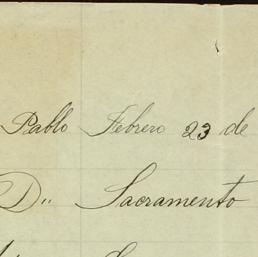 Pablo Febrero 23 de
D.. Sacramento